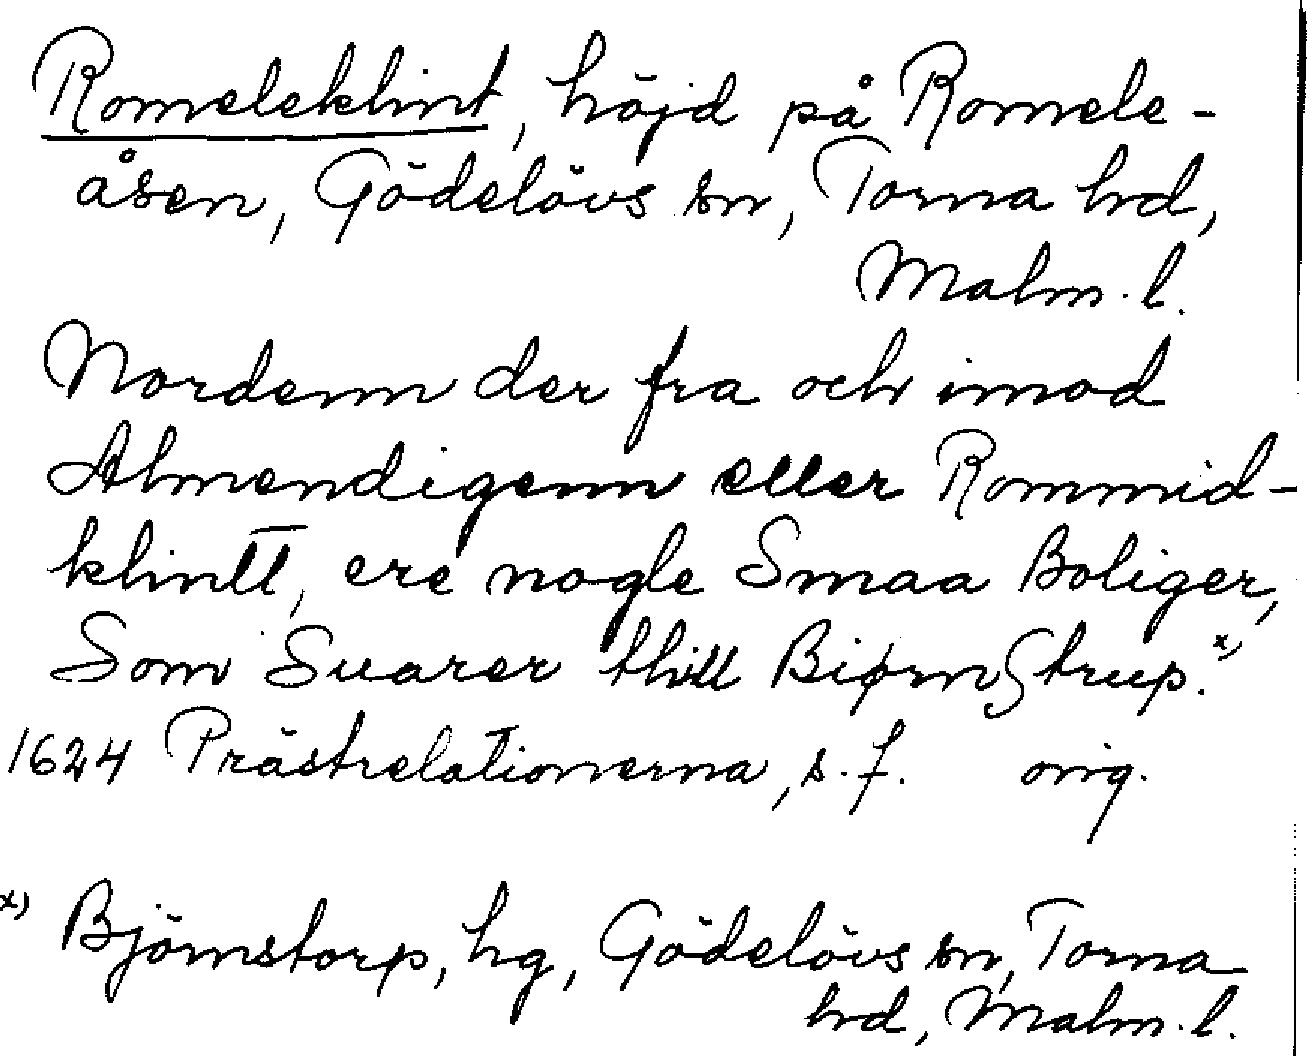 Romeleklint, höjd på Romele-
åsen, Gödelövs sn, Torna hrd,
Malm. l.
Nordenn der fra och imod
Almendigenn eller Rommid-
klintt, ere nogle Smaa Boliger,
Som Suarer thill BiørnStrup.x)
1624 Prästrelationerna, s. f. orig.
x) Björnstorp, hg, Gödelövs sn, Torna
hrd, Malm. l.